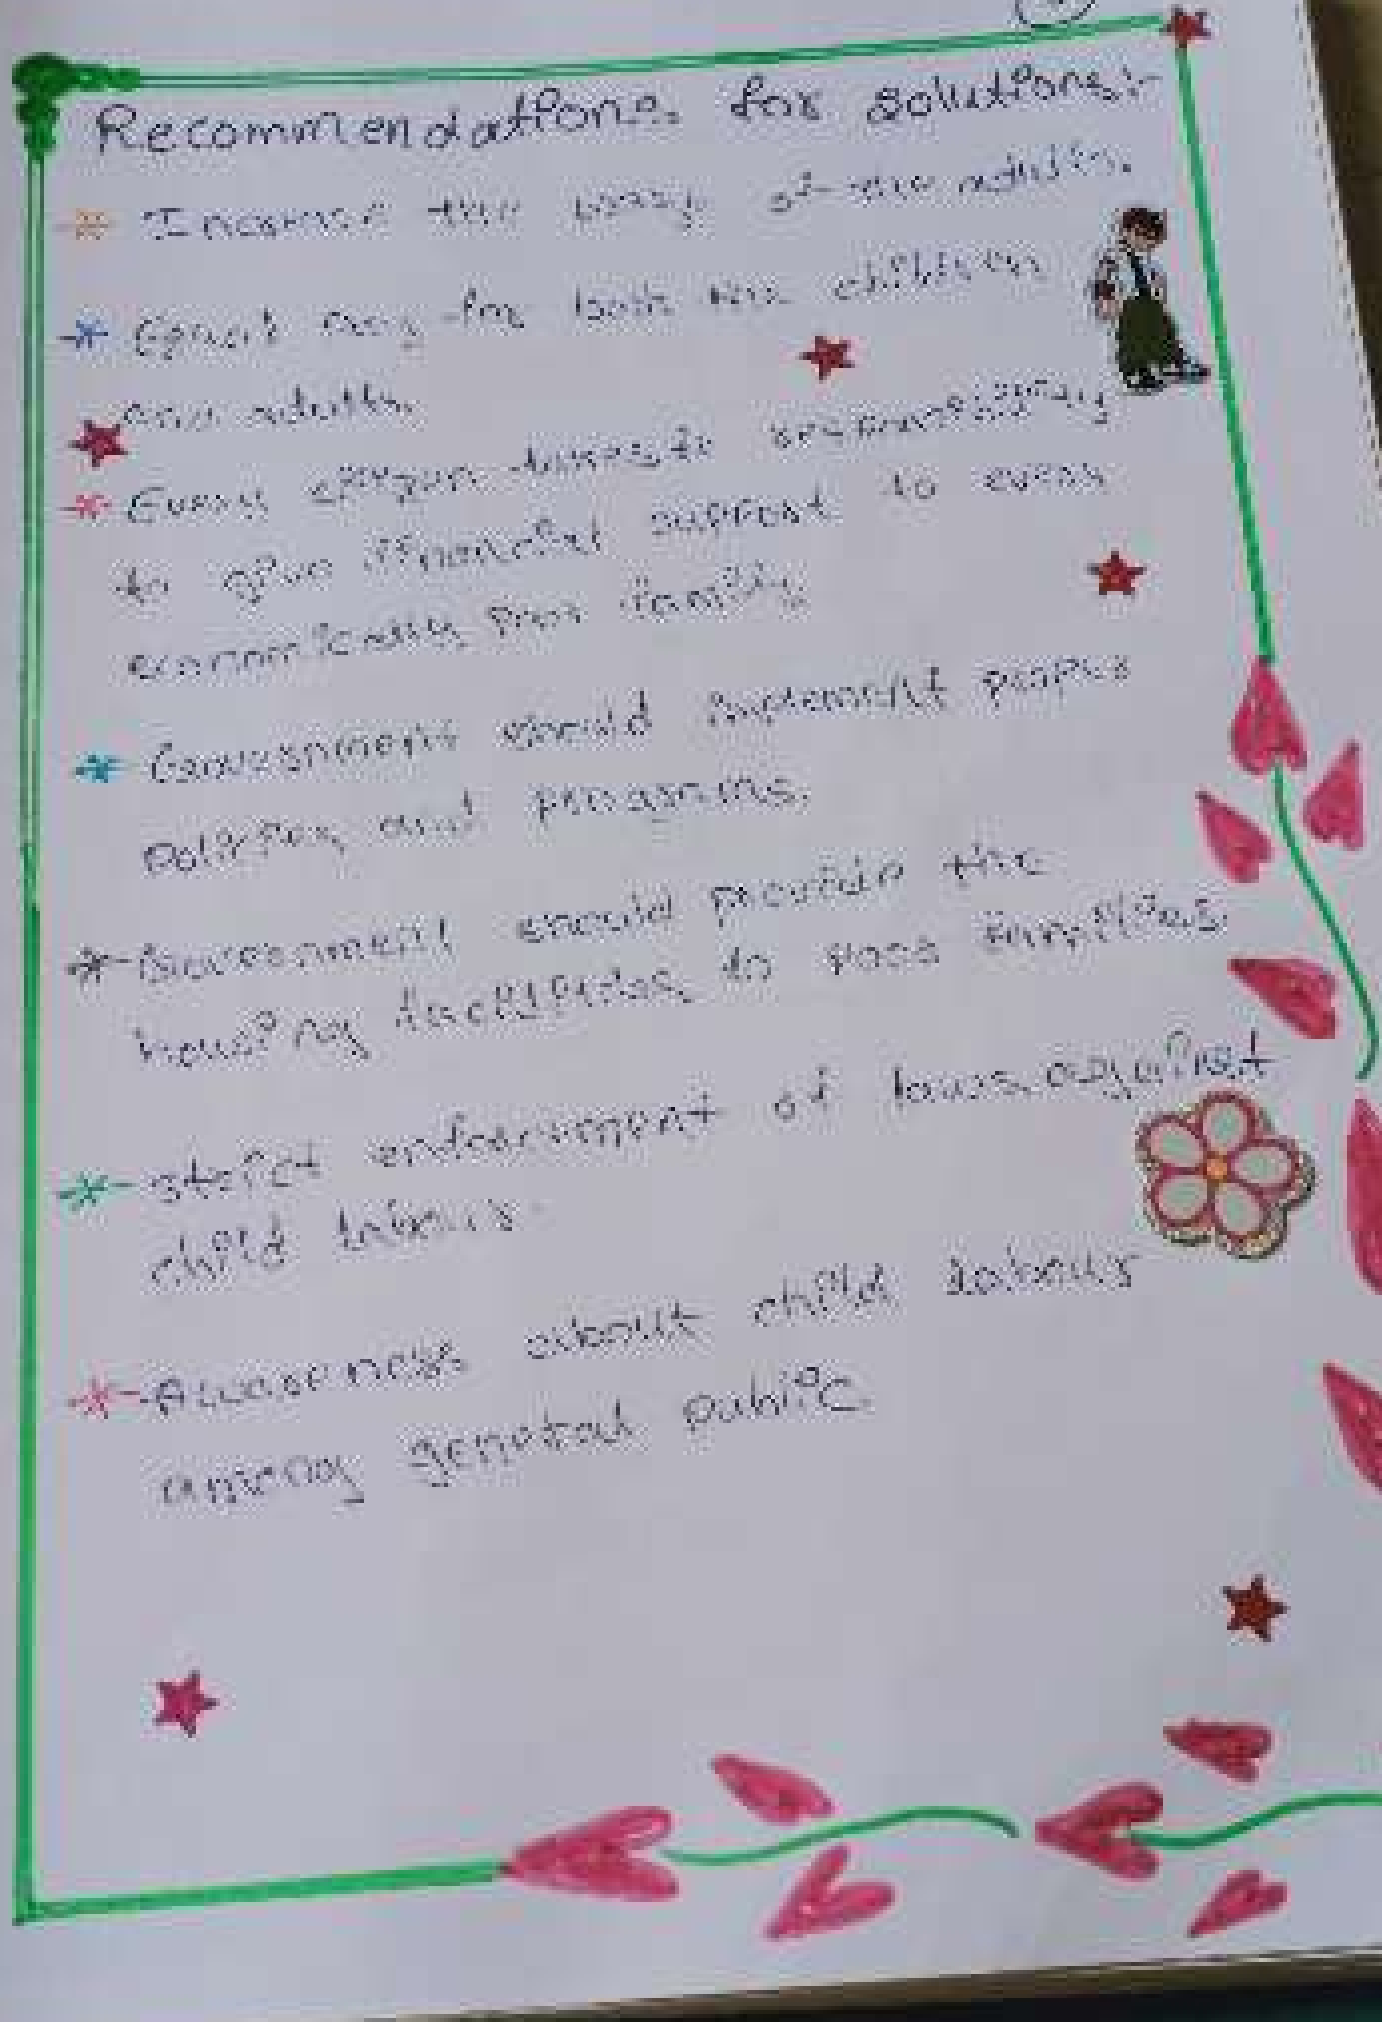 Recommendations for solutions:-
* Increase the pay of the adults.
* Equal pay for both the children
and adults.
* Every citizen takes responsibility
to give financial support to every
economically poor family.
* Government should implement proper
policies and programs.
* Government should provide the
housing facilities to poor families.
* Strict enforcement of laws against
child labour.
* Awareness about child labour
among general public.